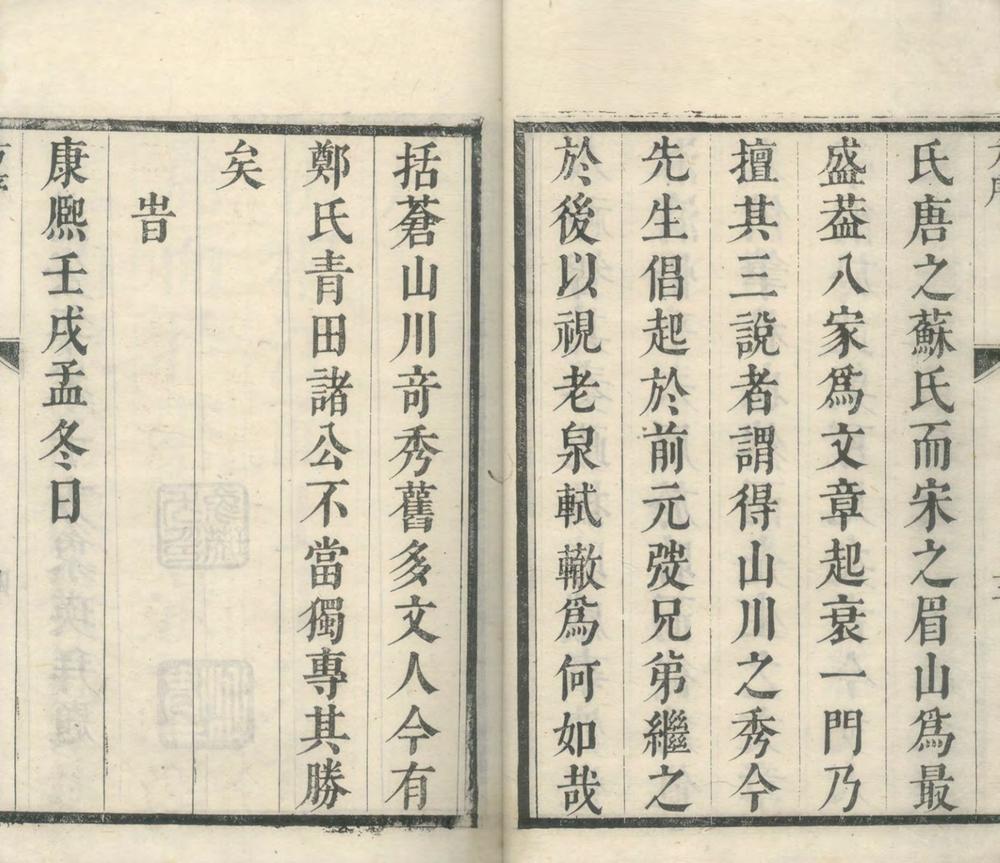 氏唐之蘇氏而宋之眉山爲最
盛葢八家爲文章起衰一門乃
擅其三說者謂得山川之秀今
先生倡起於前元弢兄弟繼之
於後以視老泉軾轍爲何如哉
括蒼山川奇秀舊多文人今有
鄭氏青田諸公不當獨專其勝
矣
旹
康熈壬戌孟冬日